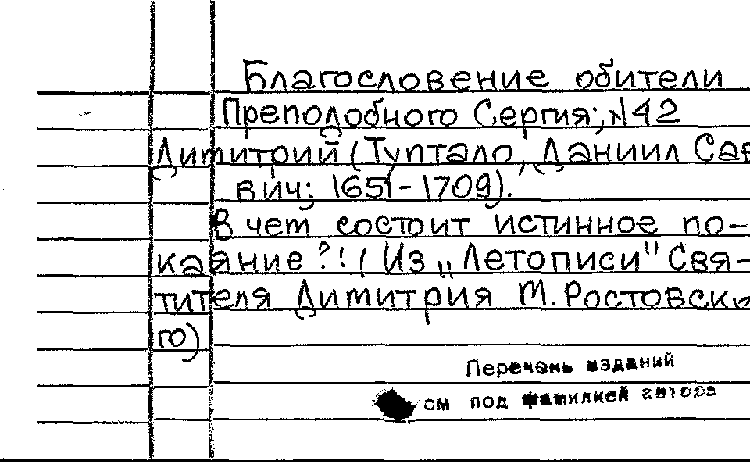 Благословение обители
Преподобного Сергия; №42
Димитрий (Туптало, Даниил Сав
вич; 1651-1709).
В чем состоит истинное по-
каяние?! (Из „Летописи" Свя-
тителя Димитрия М. Ростовски
го)
Перечень изданий
см под фамилией автора